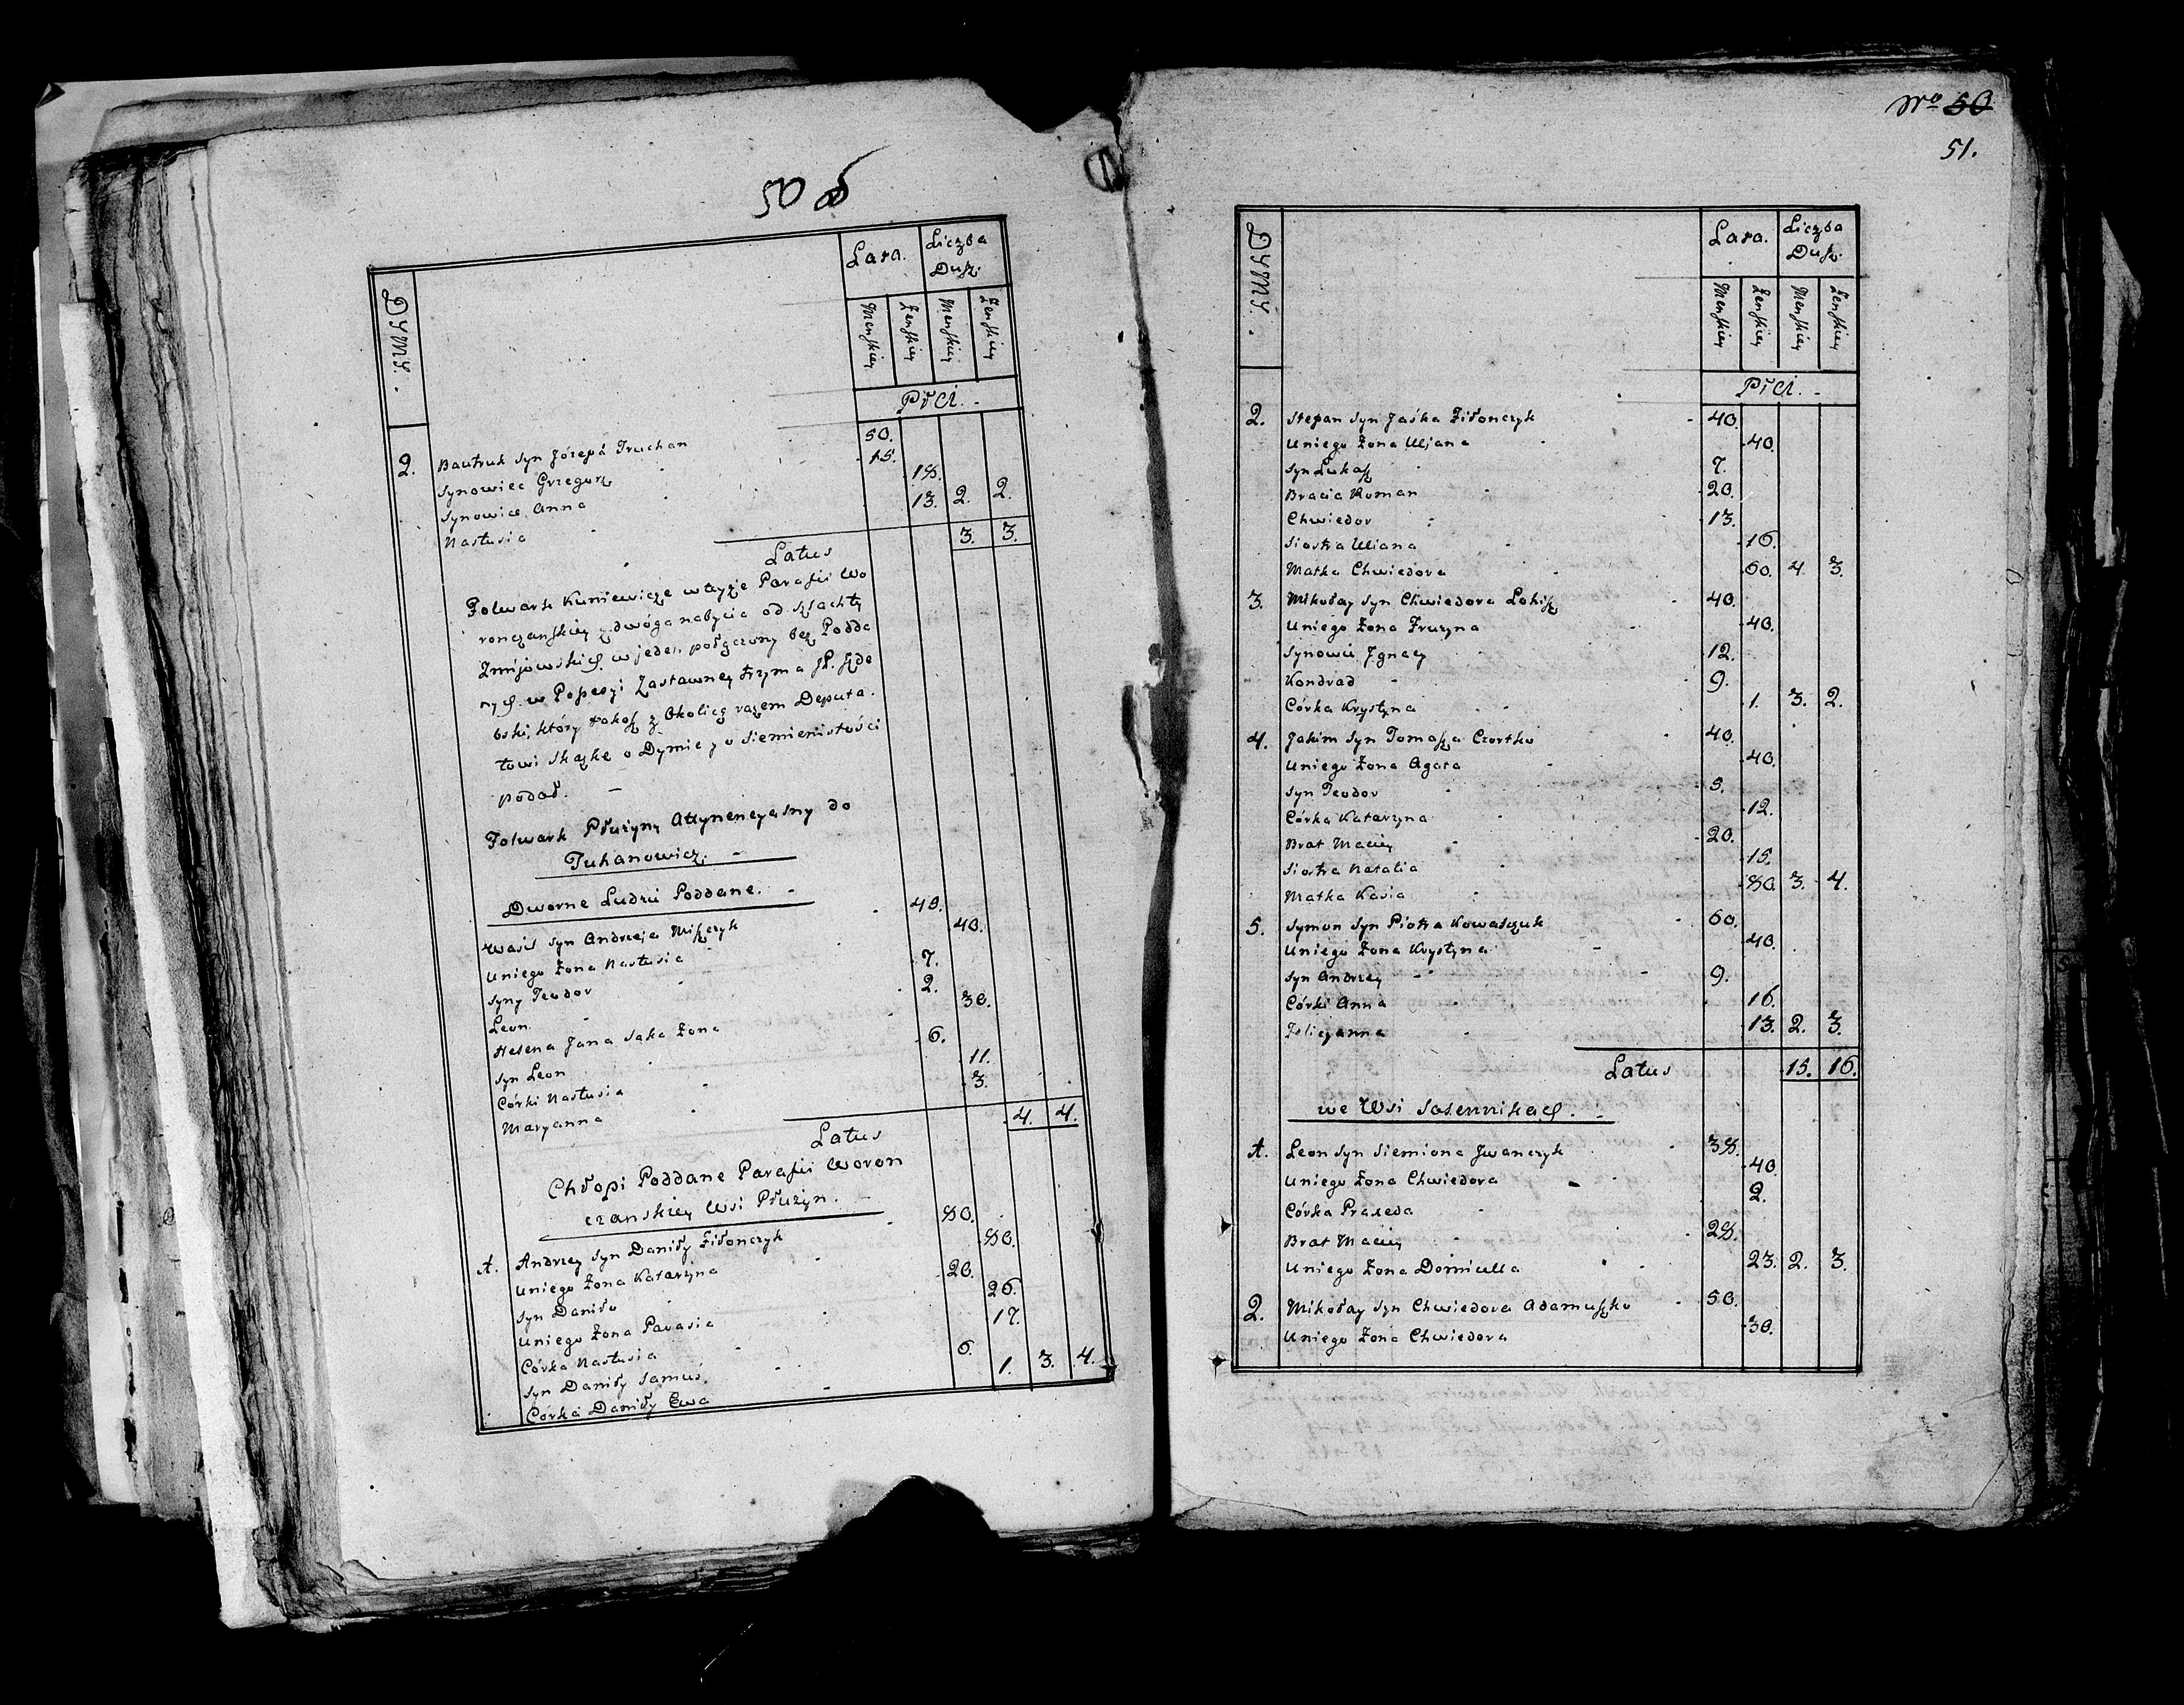 50 b
DYMY.
Lata.
Liczba
Dusz.
Męskiey
Żeńskiey
Męskiey
Żeńskiey
Płci.
2. Bautruk Syn Józepa Truchan 50.
Synowiec Grzegorz 15.
Synowice Anna 18.
Nastusia 13. 2. 2.
Latus 3. 3.
Folwark Kuniewicze w teyże Parafii Wo
ronczańskiey z dwóga nabycia od szlachty
Żmijowskich w jeden połączony bez Podda
nych w Possesyi Zastawney trzyma JP.
który takoż z Okolicą razem Deputa.
towi Skazkę o Dymie y o Siemienistości
podał.
Folwark Płużyny Attynencyalny do
Tuhanowicz.
Dworne Ludzie Poddane.
Wasil Syn Andrzeja Miszczyk 40.
Uniego Żona Nastusia 40.
Syny Teodor 7.
Leon 2.
Helena Jana Saka Żona 30.
Syn Leon 6.
Córki Nastusia 11.
Maryanna 3.
Latus 4. 4.
Chłopi Poddane Parafii Woron
czanskiey Wsi Płużyn.
1. Andrzey Syn Daniły Ziłonczyk 80.
Uniego Żona Katarzyna 80.
Syn Daniło 20.
Uniego Żona Parasia 26.
Córka Nastusia 17.
Syn Daniły Samuś 6.
Córka Daniły Ewa 1. 3. 4.
No 50
51.
DYMY.
Lata.
Liczba
Dusz.
Męskiey
Żeńskiey
Męskiey
Żeńskiey
Płci.
2. Stepan Syn Jaśka Ziłonczyk 40.
Uniego Żona Uljana 40.
Syn Łukasz 7.
Bracia Roman 20.
Chwiedor 13.
Siostra Uliana 16.
Matka Chwiedora 60. 4. 3.
3. Mikołay Syn Chwiedora Lohisz 40.
Uniego Żona Fruzyna 40.
Synowie Jgnacy 12.
Kondrad 9.
Córka Krystyna 1. 3. 2.
4. Jakim Syn Tomasza Czortko 40.
Uniego Żona Agata 40.
Syn Teodor 5.
Córka Katarzyna 12.
Brat Maciey 20.
Siostra Natalia 15.
Matka Kasia 80. 3. 4.
5. Symon Syn Piotra Kowalczuk 60.
Uniego Żona Krystyna 40.
Syn Andrzey 9.
Córki Anna 16.
Felicyanna 13. 2. 3.
Latus 15. 16.
we Wsi Sasennikach.
1. Leon Syn Siemiona Jwanczyk 38.
Uniego Żona Chwiedora 40.
Córka Praxeda 2.
Brat Maciey 28.
Uniego Żona Domicella 23. 2. 3.
2. Mikołay Syn Chwiedora Adamuszko 50.
Uniego Żona Chwiedora 30.